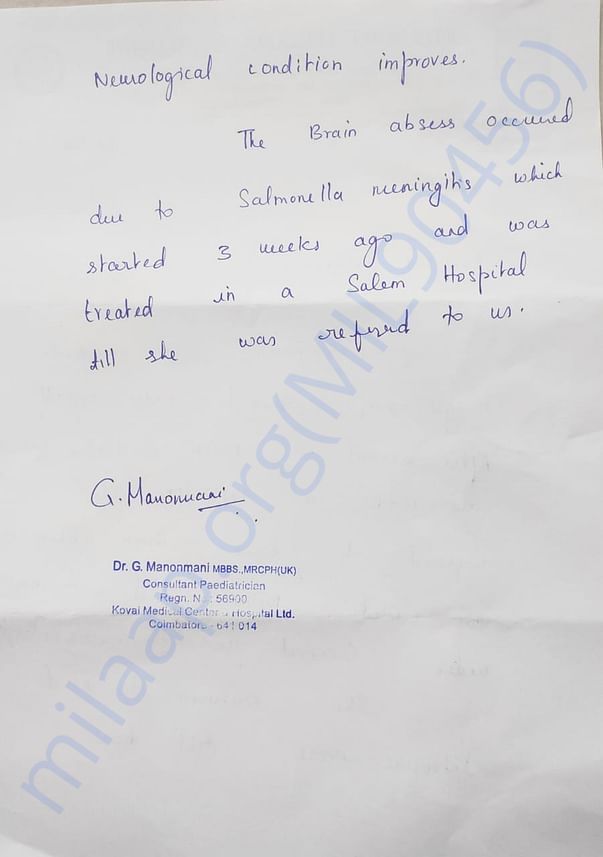 Neurological condition improves.
The Brain absess occured
due to Salmonella meningitis which
started 3 weeks ago and was
treated in a Salem Hospital
till she was referred to us.
G. Manonmani
Dr. G. Manonmani MBBS.,MRCPH(UK)
Consultant Paediatrician
Regn. N. : 56900
Kovai Medical Center Hospital Ltd.
Coimbatore - 641 014
milaap.org(MIL90456)